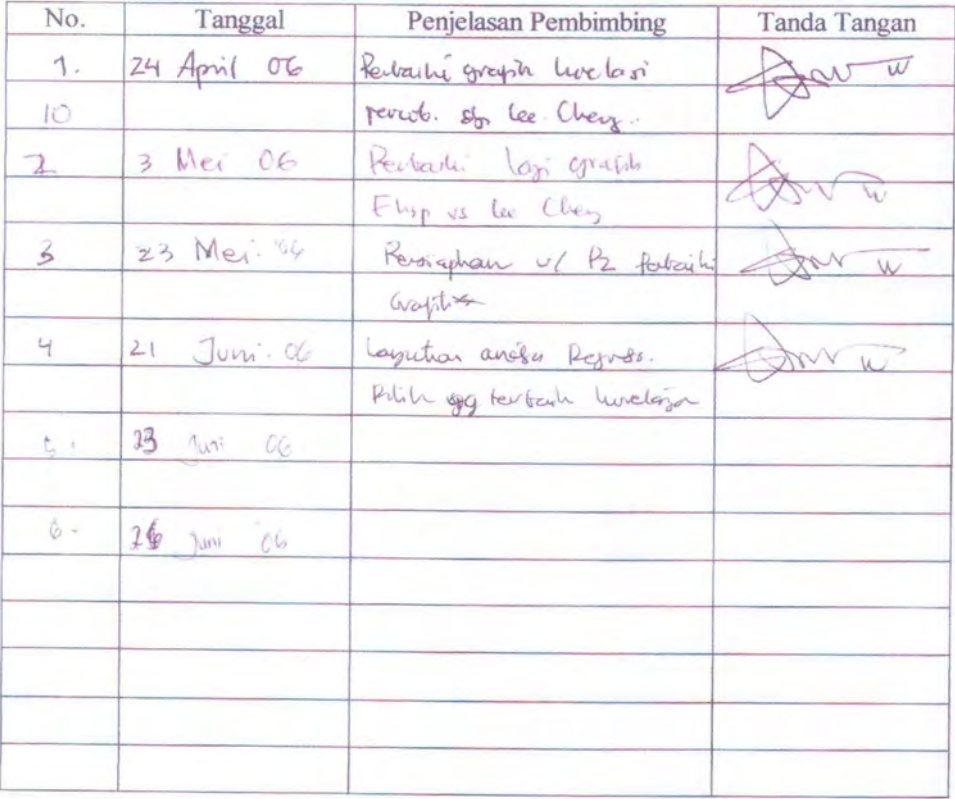 No. Tanggal Penjelasan Pembimbing Tanda Tangan
1. 24 April 06 Perbaiki graph korelasi
10 percob. dg Lee Cheng..
2 3 Mei 06 Perbaiki lagi grafik
Eksp vs Lee Cheng
3 23 Mei. Persiapkan u/ P2 perbaiki
Grafik
4 21 Juni. 06 Lanjutkan Regress.
Pilih yg terbaik
5. 23 Juni 06
6. 26 Juni 06